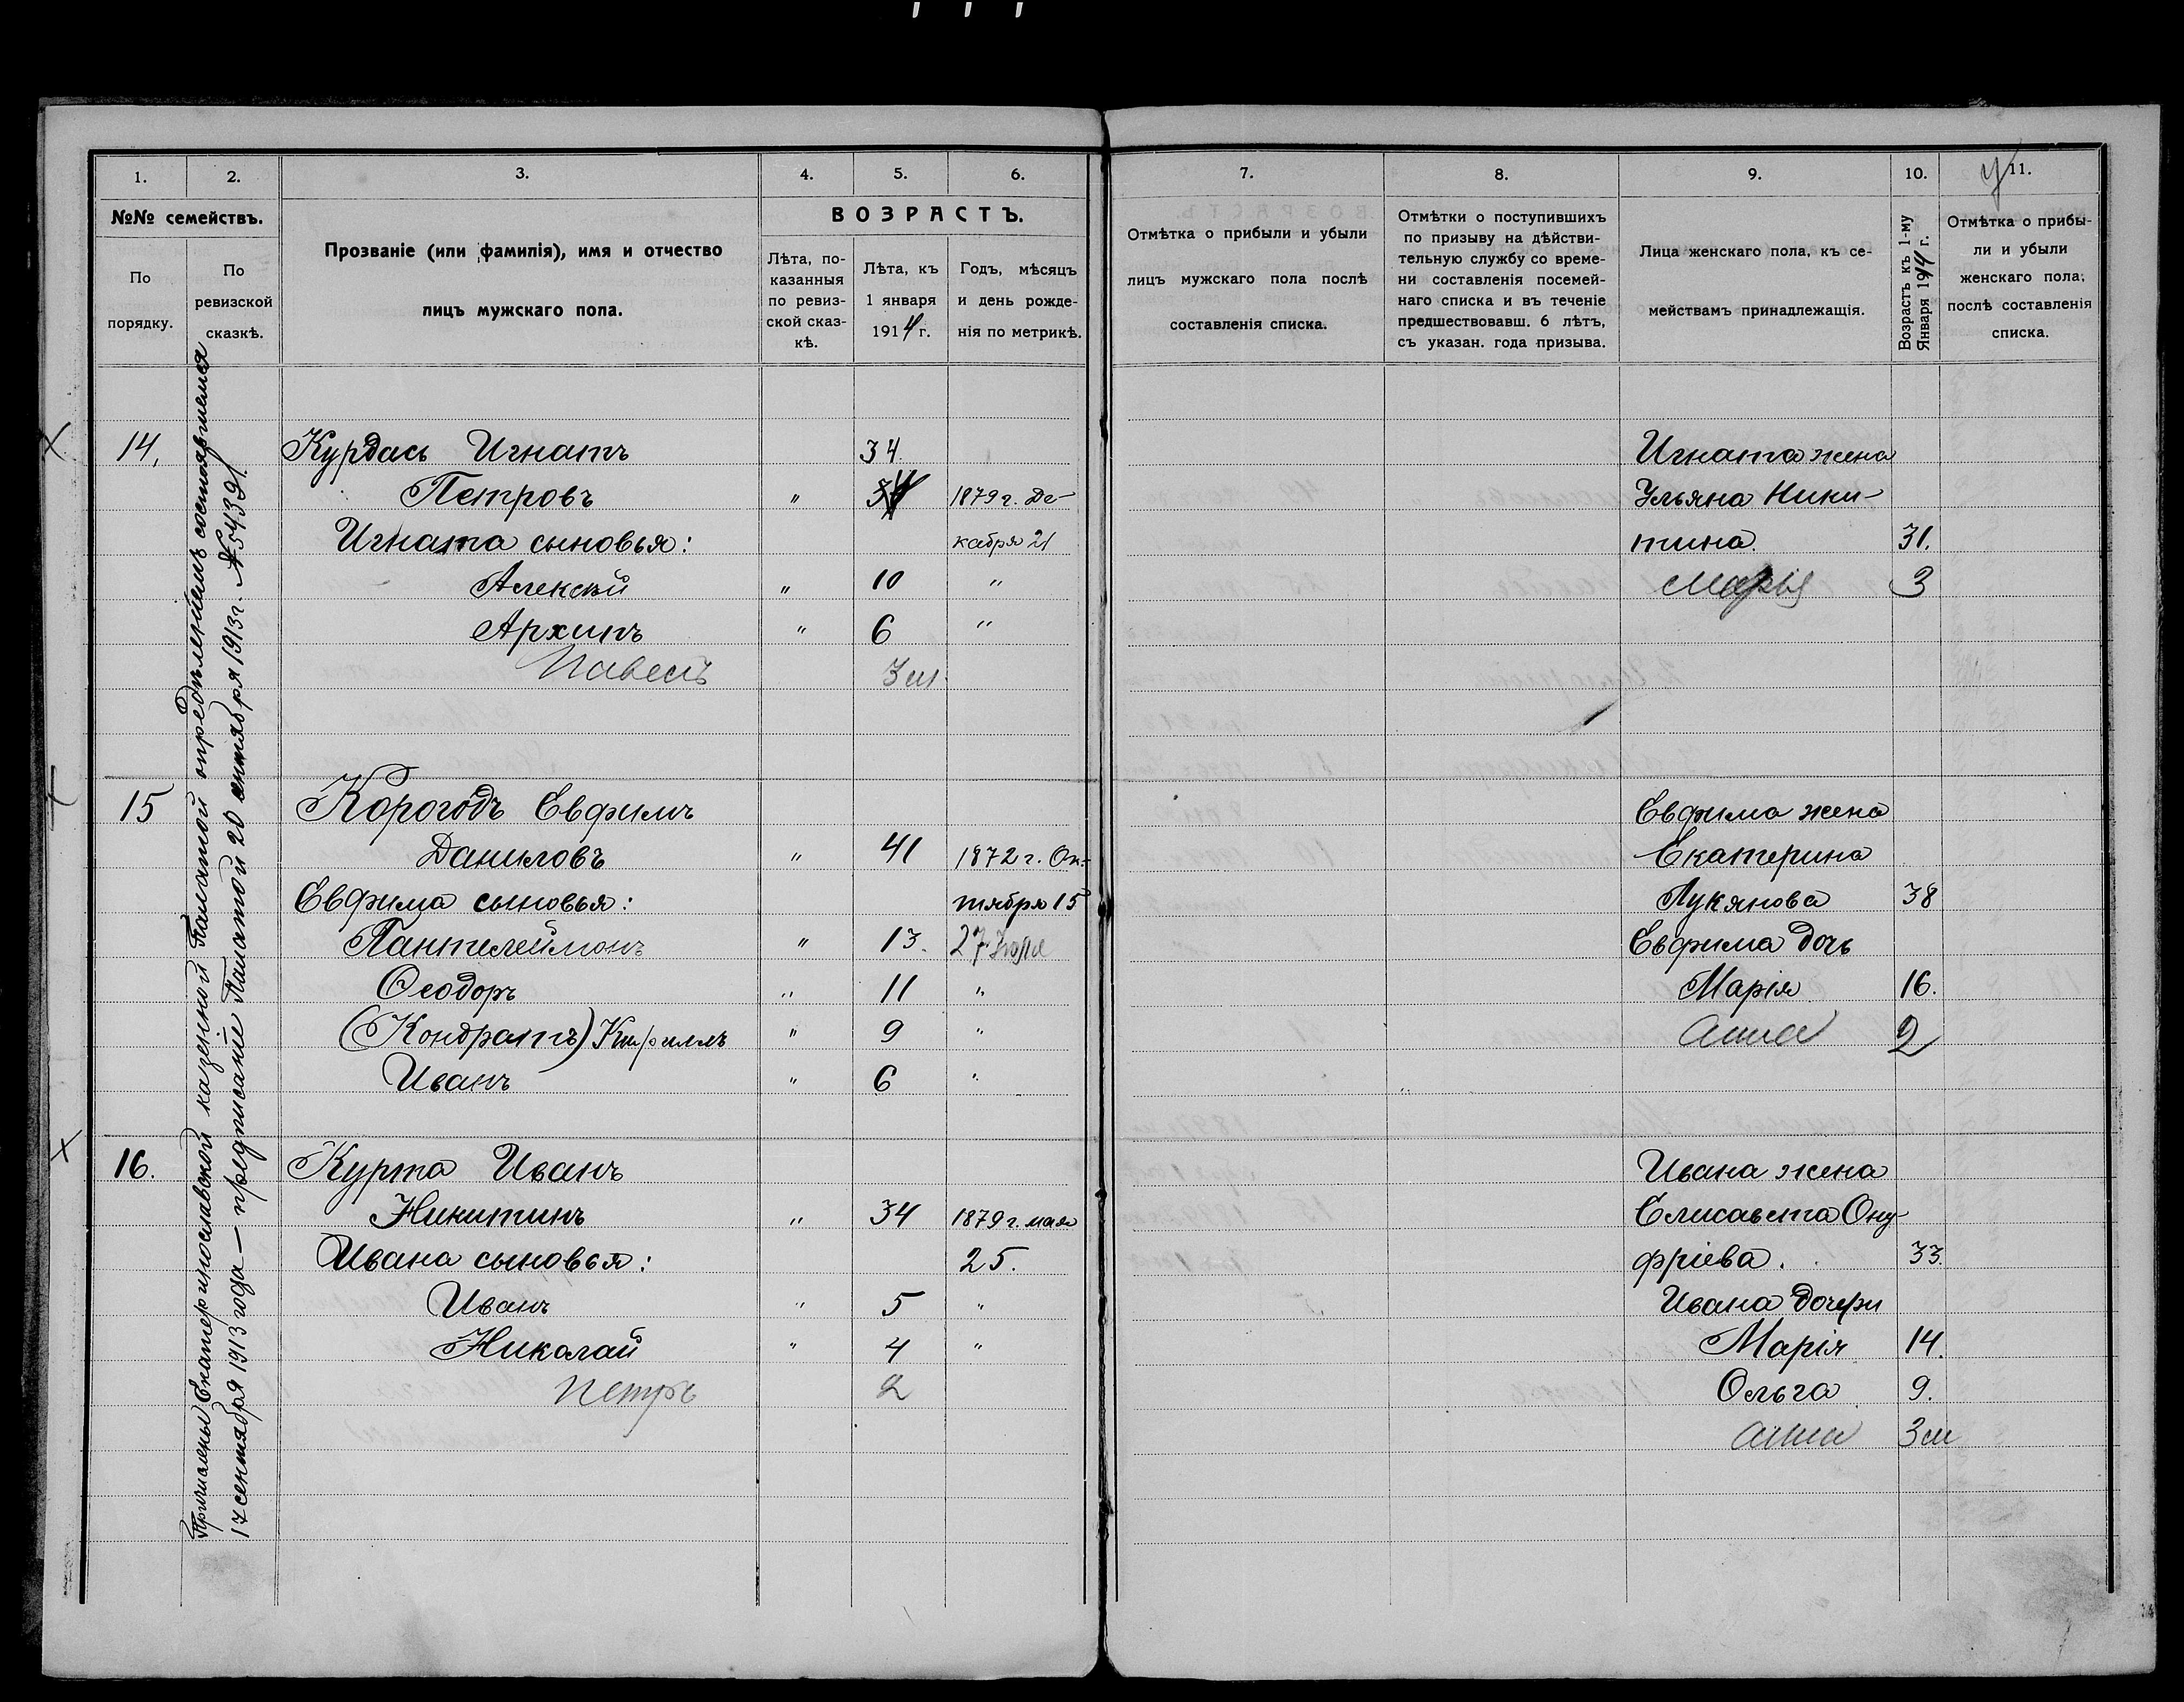 1. 2. 3. 4. 5. 6. 7. 8. 9. 10. 11.
у
№№ семействъ.
По порядку.
По ревизской сказкѣ.
Прозваніе (или фамилія), имя и отчество
лицъ мужскаго пола.
ВОЗРАСТЪ.
Лѣта, по-
казанныя
по ревиз-
ской сказ-
кѣ.
Лѣта, къ
1 января
1914 г.
Годъ, мѣсяцъ
и день рожде-
нія по метрикѣ.
Отмѣтка о прибыли и убыли
лицъ мужскаго пола послѣ
составленія списка.
Отмѣтки о поступившихъ
по призыву на дѣйстви-
тельную службу со време-
ни составленія посемей-
наго списка и въ теченіе
предшествовавш. 6 лѣтъ,
съ указан. года призыва.
Лица женскаго пола, къ се-
мействамъ принадлежащія.
Возрастъ къ 1-му
Января 1914 г.
Отмѣтка о прибы-
ли и убыли
женскаго пола,
послѣ составленія
списка.
Причислены Екатеринославской казенной Палатой опредѣленіемъ состоявшемся
17 сентября 1913 года — предписаніе Палатой 20 сентября 1913 г. № 54391.
14. Курдась Игнатъ 34. Игната жена
Петровъ " 34 1879 г. Де- Ульяна Ники-
Игната сыновья: кабря 21 тина. 31.
Алексѣй " 10 " Марія 3
Архипъ " 6 "
Павелъ 3 м
15 Корогодъ Евфимъ Евфима жена
Даниловъ " 41 1872 г. Ок- Екатерина
Евфима сыновья: тября 15 Лукянова 38
Пантелеймонъ " 13. 27 Іюля Евфима дочь
Ѳеодоръ " 11 " Марія 16.
(Кондратъ) Кириллъ " 9 " Анна 2
Иванъ " 6 "
16. Курта Иванъ Ивана жена
Никитинъ " 34 1879 г. мая Елисавета Ону-
Ивана сыновья: 25. фріева. 33.
Иванъ " 5 " Ивана дочери
Николай " 4 " Марія 14.
Петръ 2 Ольга 9.
Анна 3 м